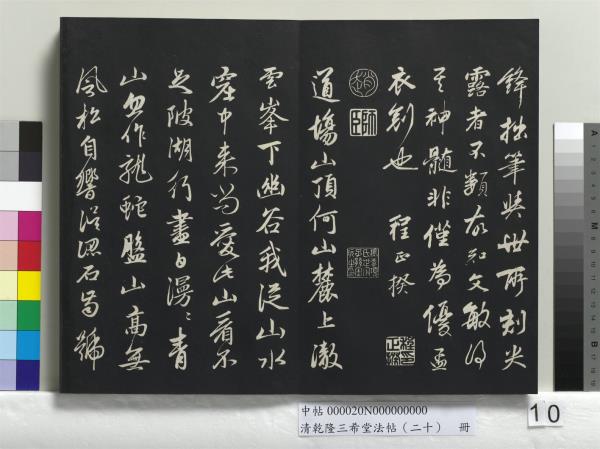 鋒拙筆與世所刻尖
露者不類故知文敏得
其神髓非僅為優孟
衣也 程正揆
道場山頂何山麓上澈
雲峯下幽谷我從山水
窟中來尚愛此山看不
足陂湖行盡白漫〻青
山忽作龍蛇盤山高無
風松自響誤認石齒號
中帖 000020N000000000
清乾隆三希堂法帖(二十) 冊
10